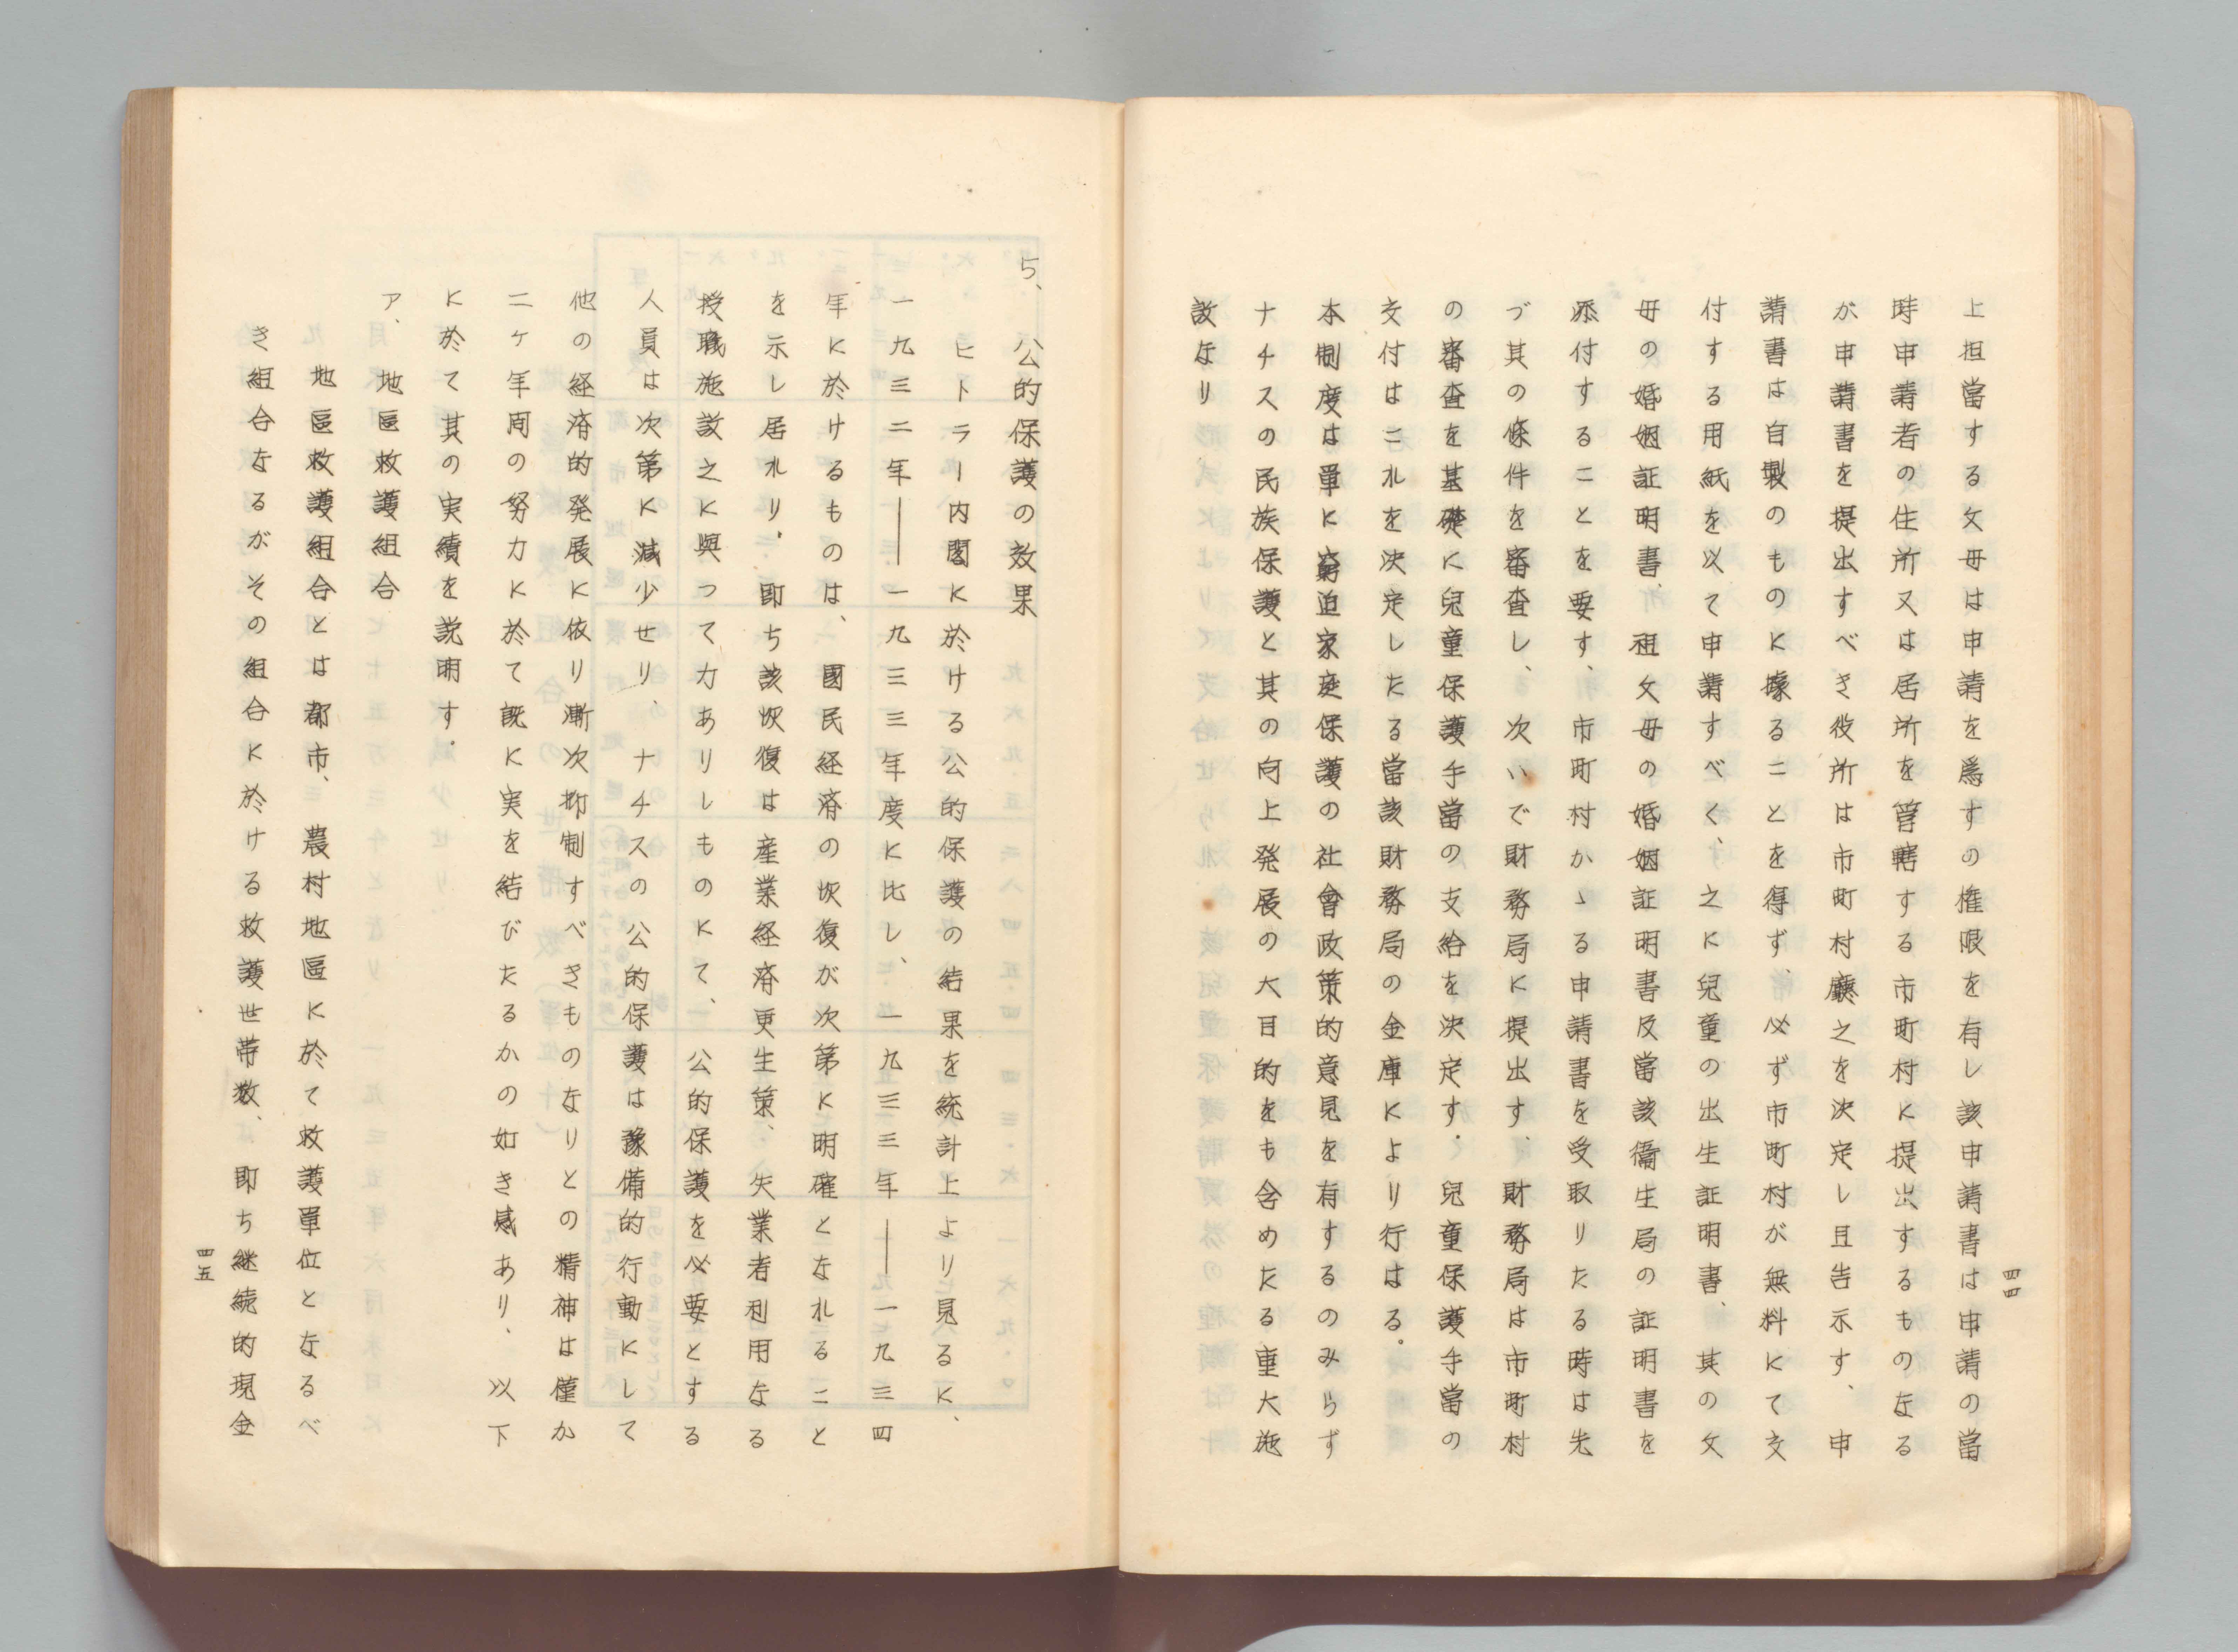 上担當する父母は申請を爲すの権限を有し該申請書は申請の當
時申請者の住所又は居所を管轄する市町村に提出するものなる
が申請書を提出すべき役所は市町村廳之を決定し且告示す、申
請書は自製のものに據ることを得ず、必ず市町村が無料にて交
付する用紙を以て申請すべく、之に兒童の出生証明書、其の父
母の婚姻証明書、祖父母の婚姻証明書及當該衞生局の証明書を
添付することを要す、市町村かゝる申請書を受取りたる時は先
づ其の條件を審査し、次いで財務局に提出す、財務局は市町村
の審査を基礎に兒童保護手當の支給を決定す。兒童保護手當の
交付はこれを決定したる當該財務局の金庫により行はる。
本制度は單に窮迫家庭保護の社會政策的意見を有するのみらず
ナチスの民族保護と其の向上発展の大目的をも含めたる重大施
設なり
四四
5、公的保護の效果
ヒトラー内閣に於ける公的保護の結果を統計上より見るに、
一九三二年――一九三三年度に比し、一九三三年――一九三四
年に於けるものは、國民経済の恢復が次第に明確となれること
を示し居れり。即ち該恢復は産業経済更生策、失業者利用なる
授職施設之に與つて力ありしものにて、公的保護を必要とする
人員は次第に減少せり、ナチスの公的保護は豫備的行動にして
他の経済的発展に依り漸次抑制すべきものなりとの精神は僅か
二ヶ年間の努力に於て既に実を結びたるかの如き感あり、以下
に於て其の実績を説明す。
ア、地區救護組合
地區救護組合とは都市、農村地區に於て救護單位となるべ
き組合なるがその組合に於ける救護世帯数、即ち継続的現金
四五